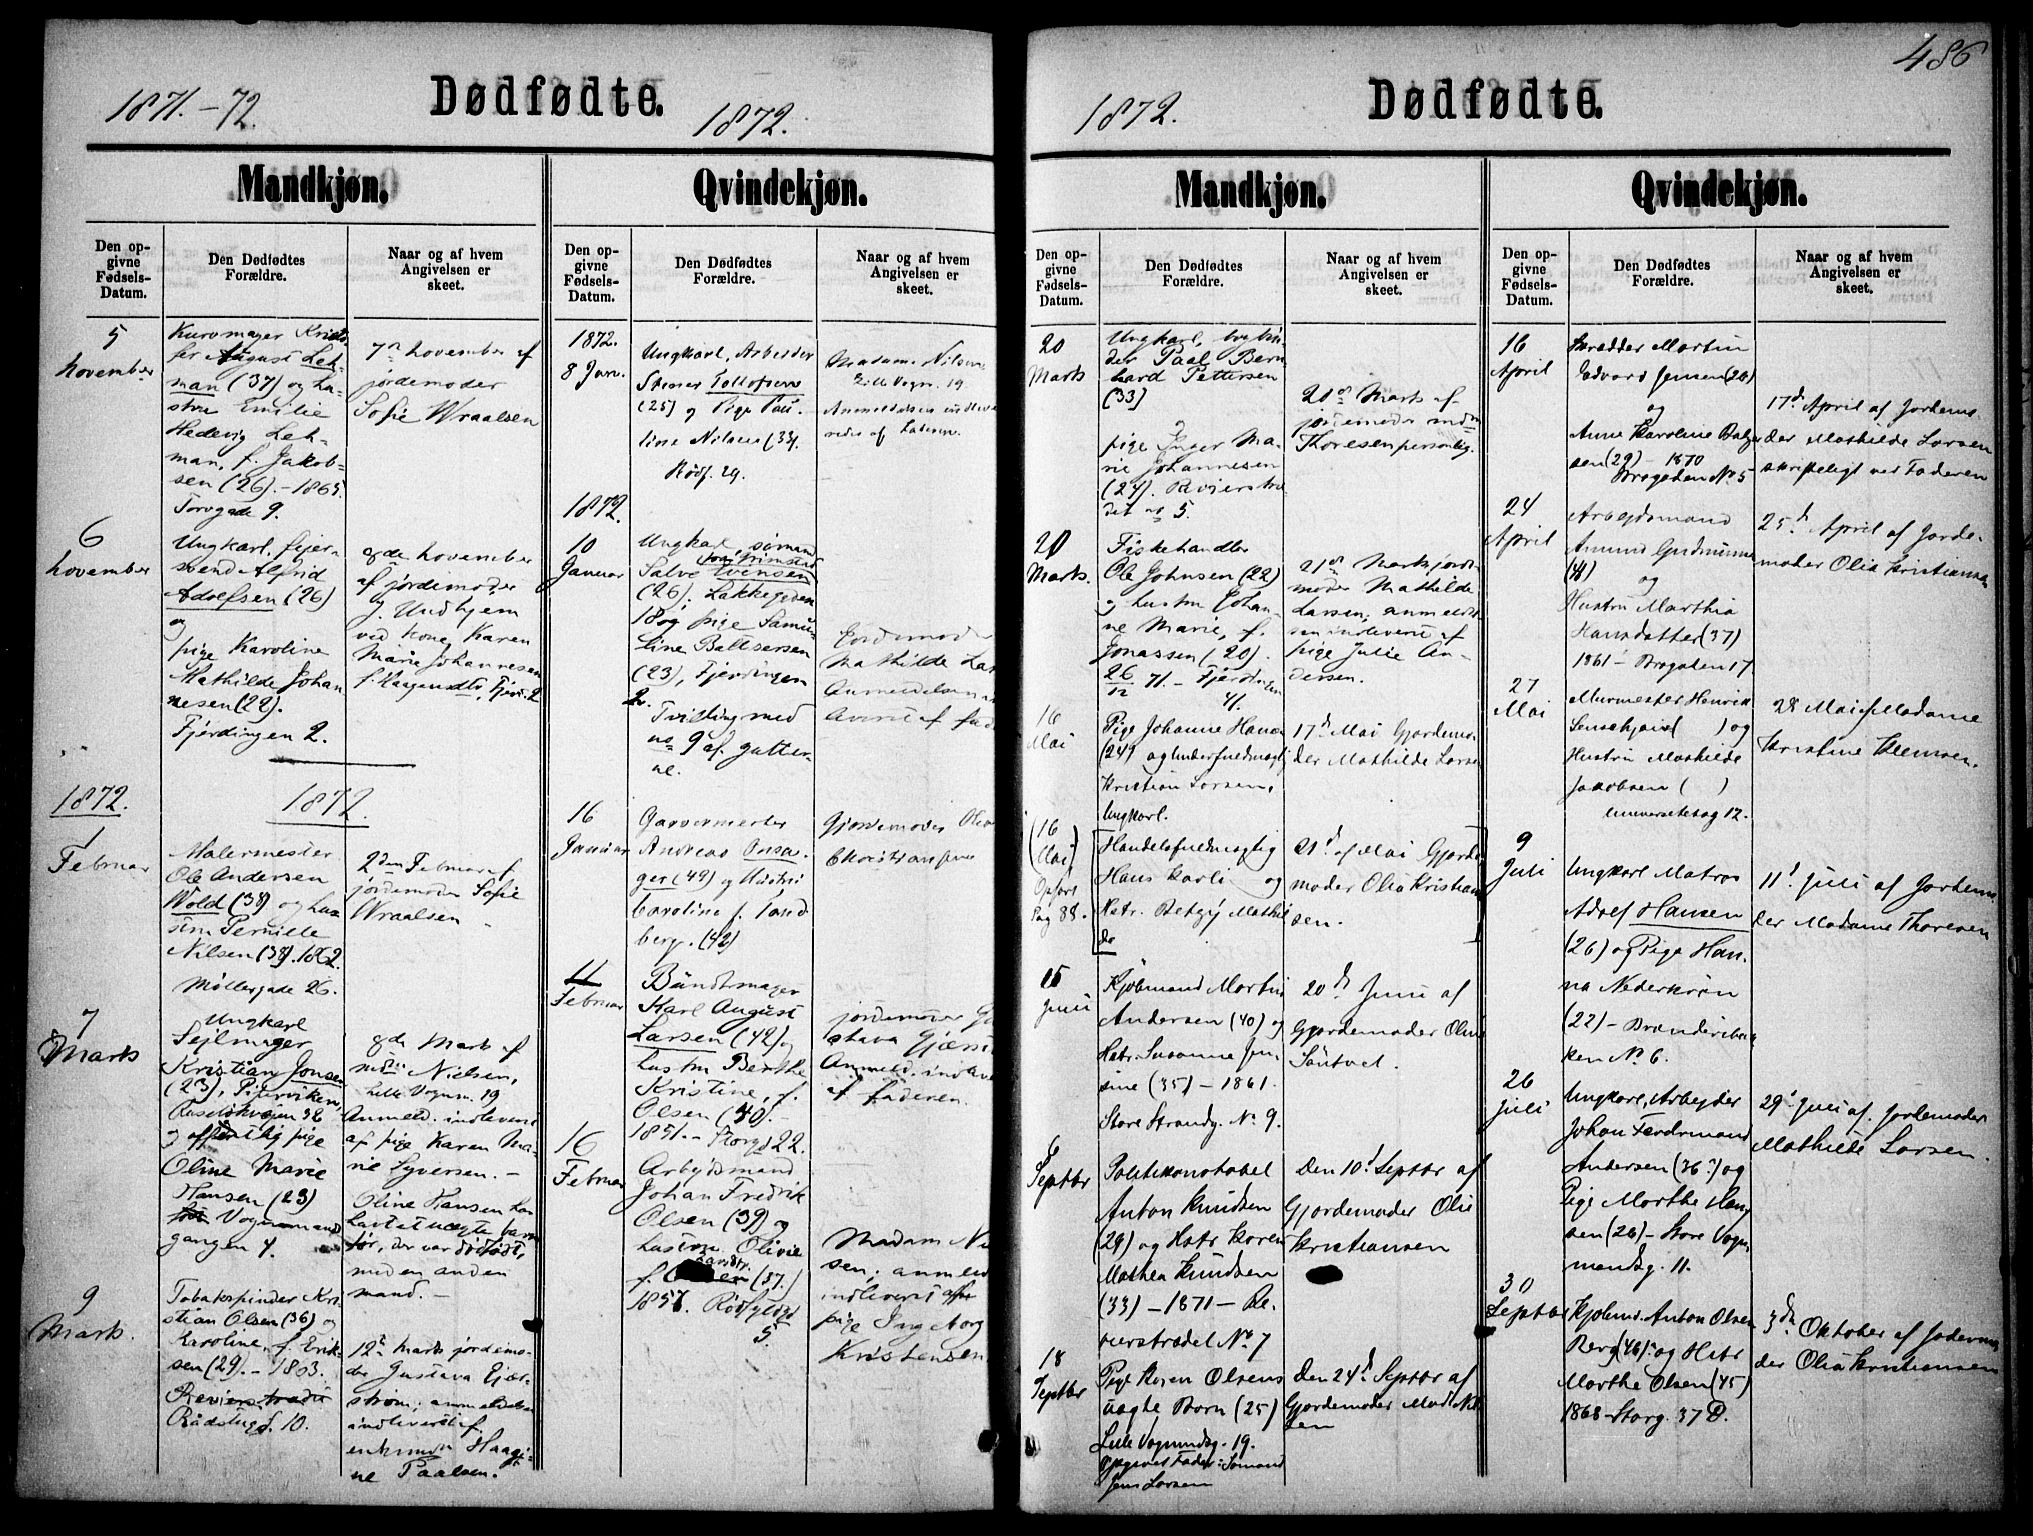 486
1871.-72.
Dødfødte.
1872.
Mandkjøn.
Qvindekjøn.
Den op-
givne
Fødsels-
Datum.
Den Dødfødtes
Forældre.
Naar og af hvem
Angivelsen er
skeet.
Den op-
givne
Fødsels-
Datum.
Den Dødfødtes
Forældre.
Naar og af hvem
Angivelsen er
skeet.
5
November
Kurvmager
August Leh-
man (37) og
Emilie
Hedevig Leh-
man, f. Jakob-
sen (26). - 1865.
Torvgade 9.
7de November af
jordemoder
Sofie Wraalsen
6
November
Ungkarl,
svend Alfrid
Adolfsen (26)
og
pige Karoline
Mathilde Johan
nesen (22).
Fjerdingen 2.
8de November
af jordemoder
ved kone Karen
Marie Johannesen
1872.
1872.
1
Februar
Malermester
Ole Andersen
Wold (38) og hu
stru Pernille
Nilsen (38). 1862.
Møllergade 26.
2den Februar af
jordemoder Sofie
Wraalsen
7
Marts
Ungkarl
Sejlmager
Kristian Jonsen
(23), Pipervikenn
Ruseløkvejen 32
og pige
Oline Marie
Hansen (23)
Vognmands
gangen 4.
8de Marts af
Nielsen,
Lille Vognm. 19
Anmeld. indleveret
af pige Karen Ma-
rie Syversen. -
Oline Hansen har
havt et uægte barn
før, der var dødfødt,
med en anden
mand. -
9
Marts.
Tobakspinder Kri-
stian Olsen (36) og
Karoline, f. Erik-
sen (29). - 1863.
Revierstrædet
Rådstugd. 10.
12te Marts jordemo-
der Gustava Gjær-
strøm; anmeldelsen
indleveret af
Haagi-
ne Paalsen.
1872.
8 Jan.
Ungkarl, Arbeider
Stener Tollofsen
(25) og Pige Pau-
line Nilsen (33).
Rødf. 29.
Madam Nilsen
Lille Vogn. 19
Anmeldelsen indleve
redes af Faderen.
1872.
10
Januar
Ungkarl, sømand
fra Grimstad
Salve Evensen
(26). Lakkegaden
18 og pige Samu-
line Baltsersen
(23), Fjerdingen
2.
Tvilling med
no 9 af gutter-
ne.
Jordemoder
Mathilde Lar
Anmeldelsen in
leveret af fad
16
Januar
Garvermester
Andreas Onsa-
ger (49) og Hustru
Caroline f. Sand
berg. (42)
Gjordemoder Olea
Christiansen
11
Februar
Bundtmager
Karl August
Larsen (42) og
hustru Berthe
Kristine, f.
Olsen (40). -
1851. - Storgd 22.
jordemoder Gu
stava Gjærs
Anmeld. indleve
af faderen.
16
Februar
Arbejdsmand
Johan Fredrik
Olsen (39) og
hustru Olivie
(37.)
1857. Rødfyldgd
5.
Madam Ni
sen; anmeld
indleveret af
pige Ingeborg
Kristensen.
1872.
Dødfødte.
Mandkjøn.
Qvindekjøn.
Den op-
givne
Fødsels-
Datum.
Den Dødfødtes
Forældre.
Naar og af hvem
Angivelsen er
skeet.
Den op-
givne
Fødsels-
Datum.
Den Dødfødtes
Forældre.
Naar og af hvem
Angivelsen er
skeet.
20
Marts
Ungkarl, bogbin-
der Paal Bern
hard Pettersen
(33)
og
pige Inger Ma-
rie Johannesen
(24). Revierstræ
det no 5.
21de Marts af
jordemoder
Thoresen personlig.
20
Marts.
Fiskehandler
Ole Johnsen (22)
og hustru Johan-
ne Marie, f.
Jonassen (20).
26/12 71. - Fjerdingen
41.
21de Marts jorde-
moder Mathilde
Larsen, anmeldel
sen indleveret af
pige Julie An-
dersen.
16
Mai
Pige Johanne Hansen
(24) og Underfuldmægtig
Kristian Larsen,
Ungkarl.
17de Mai Gjordemo-
der Mathilde Larsen
(16
Mai)
Opført
Pag 88.
Handelsfuldmægtig
Hans Karli og
Hstr. Betzy Mathil
de
21de af Mai Gjorde
moder Olia Kristian
sen.
15
Juni
Kjølmand Martin
Andersen (40) og
Hstr. Susanne Jen-
sine (35) - 1861.
Store Strandg. No 9.
20de Juni af
Gjordemoder Oline
Sæntvet.
6
Septbr
Politikonstabel
Anton Knudsen
(29) og Hstr Karen
Mathea Knudsen
(33) - 1871 - Re-
vierstrædet No 7
Den 10de Septbr af
Gjordemoder Olia
Kristiansen
18
Septbr
Pige Karen Olsens
uægte Barn (25)
Lille Vogmndsg. 19.
opgivet Fader: Sømand
Jens Larsen
Den 24de Septbr af
Gjordemoder Mad. Nil
sen
16
April
Skrædder Martin
Edvard Jensen (26)
og
Anne Karoline Balzer
sen (29) - 1870
Brogaden No 5
17de April af Jordemo-
der Mathilde Larsen
skrifteligt ved Faderen
24
April
Arbejdsmand
Amund Gudmunsen
(41)
og
Hustru Marthia
Hansdatter (37)
1861 - Brogaden 17.
25de April af Jorde-
moder Olia Kristiansen
27
Mai
Murmester Henrik
( ) og
Hustru Mathilde
Jakobsen ( )
universitetsg 12.
28 Mai af Madame
Kristine Klemsen.
9
Juli
Ungkarl Matros
Adolf Hansen
(26) og Pige Han-
na Nederkvin
(22) - Brænderibak
ken No 6.
11te Juli af Jordemo
der Madame Thoresen
26
Juli
Ungkarl, Arbejder
Johan Ferdinand
Andersen (36) og
Pige Marthe Han-
sen (26) - Store Vogn-
mandsg. 11.
29de Juli af Jordemoder
Mathilde Larsen.
30
Septbr
Kjølmd. Anton Olsen
Berg (46) og Hstr
Marthe Olsen (45)
1868 - Storg. 37 D.
3die Oktober af Jordemo
der Olia Kristiansen